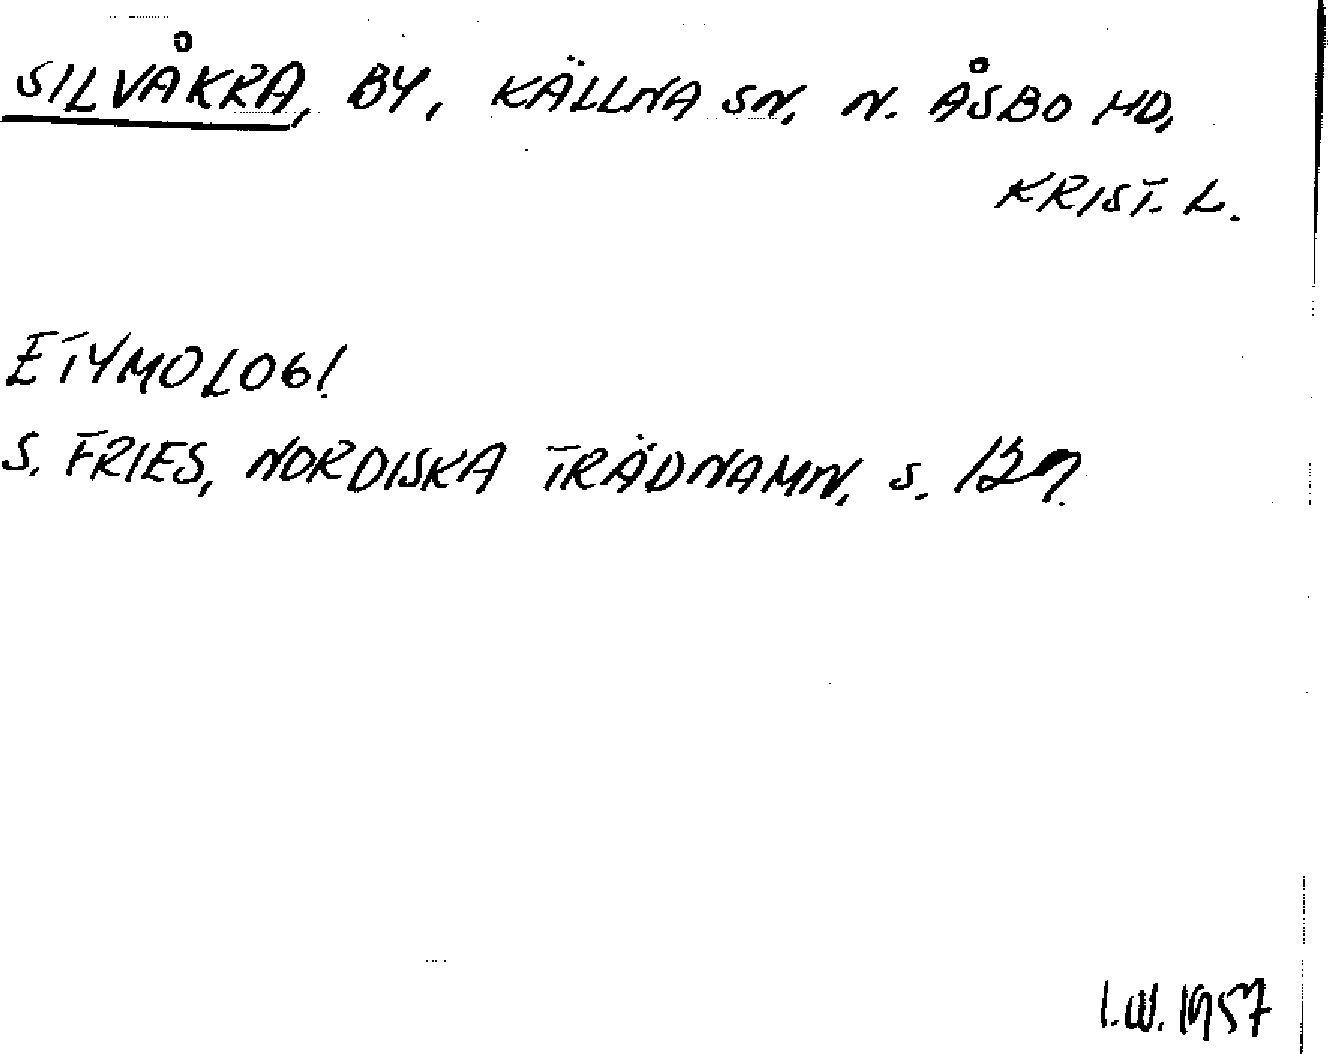 SILVÅKRA, BY, KÄLLNA SN, N. ÅSBO HD,
KRIST. L.
ETYMOLOGI
S. FRIES, NORDISKA TRÄDNAMN, S.
I.W. 1957